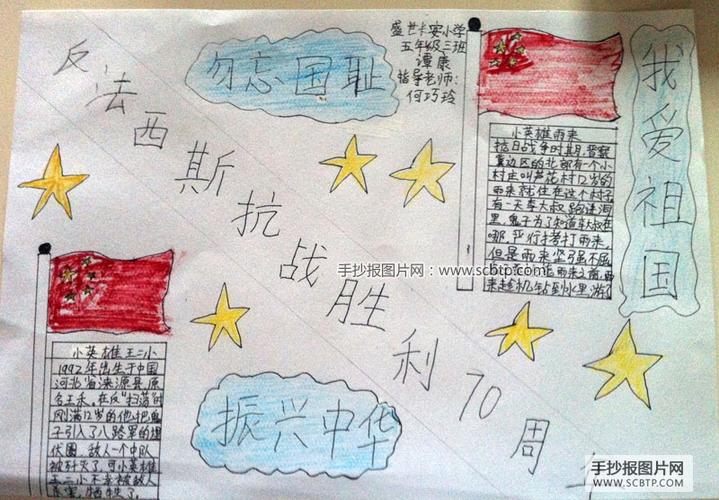 反法西斯抗战胜利70周
勿忘国耻
盛世卡安小学
五年级三班
谭康
指导老师:
何巧玲
我爱祖国
小英雄雨来
抗日战争时期,晋察
冀边区的北部有一个小
村庄叫芦花村12岁的
雨来就住在这个村子
有一天李大叔跑进洞
里,鬼子为了知道李大叔在
哪,严行拷打雨来,
但是雨来坚强不屈
雨来
手抄报图片网:www.scbtp.com
小英雄王二小
1992年出生于中国
河北省涞源县,原
名王禾,在反"扫荡"时
刚满12岁的他,把鬼
子引入了八路军的埋
伏圈,敌人一个中队
被歼灭了,可小英雄
王二小不幸被敌人
杀害,牺牲了。
振兴中华
手抄报图片网
WWW.SCBTP.COM